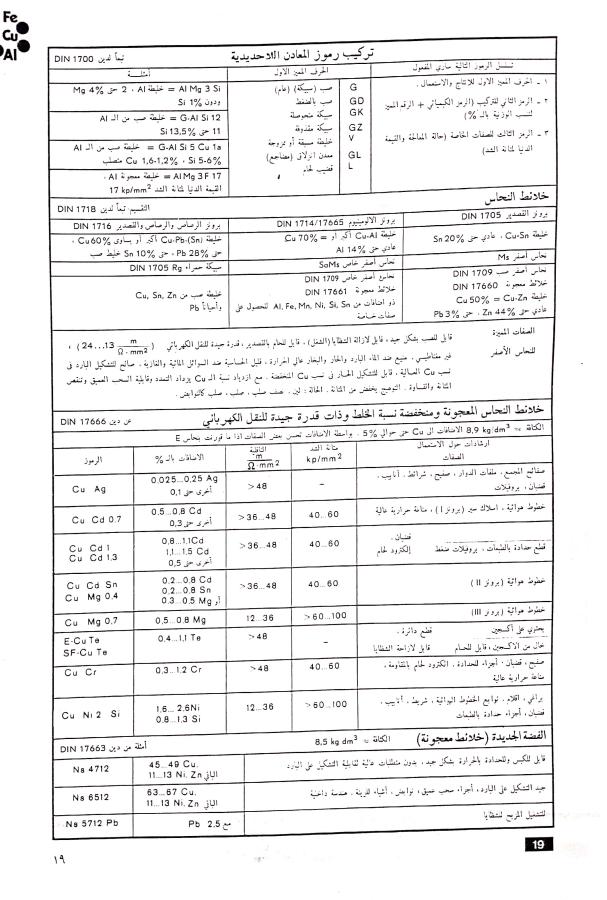 Fe
Cu
Al
تركيب رموز المعادن اللاحديدية
تبعاً لدين DIN 1700
تسلسل الرموز التالية ساري المفعول
الحرف المميز الاول
أمثلـــة
١ - الحرف المميز الاول للانتاج والاستعمال.
٢ - الرمز الثاني للتركيب (الرمز الكيميائي + الرقم المميز
لنسب الوزنية بالـ %)
٣ - الرمز الثالث للصفات الخاصة (حالة المعالجة والقيمة
الدنيا لمتانة الشد)
G صب (سبيكة) (عام)
GD صب بالضغط
GK سبيكة
GZ سبيكة مقذوفة
V خليطة مسبقة أو
GL معدن انزلاق (مضاجع)
L قضيب لحام
Al Mg 3 Si = خليطة Al، 2 حتى 4% Mg
ودون 1% Si
G-Al Si 12 = خليطة صب من الـ Al
11 حتى 13,5% Si
G-Al Si 5 Cu 1a = خليطة صب من الـ Al
Si 5-6% ، Cu 1,6-1,2%
Al Mg 3 F 17 = خليطة معجونة Al،
القيمة الدنيا لمتانة الشد 17 kp/mm²
خلائط النحاس
التقسيم تبعاً لدين DIN 1718
برونز القصدير DIN 1705
برونز الالومينيوم DIN 1714/17665
برونز الرصاص والرصاص والقصدير DIN 1716
خليطة Cu-Sn، عادي حتى 20% Sn
خليطة Cu-Al أكبر أو = 70% Cu
عادي حتى 14% Al
خليطة Cu-Pb-(Sn) أكبر أو يساوي 60% Cu،
حتى 28% Pb، حتى 10% Sn خليط صب
نحاس أصفر Ms
SoMs
سبيكة حمراء DIN 1705 Rg
نحاس أصفر صب DIN 1709
خلائط معجونة DIN 17660
خليطة Cu-Zn = 50% Cu
عادي حتى 44% Zn، حتى 3% Pb
نحاس أصفر خاص DIN 1709
خلائط معجونة DIN 17661
ذو اضافات من Al, Fe, Mn, Ni, Si, Sn للحصول على
صفات خاصة
خليطة صب من Cu, Sn, Zn
وأحياناً Pb
الصفات المميزة
للنحاس الأصفر
قابل للصب بشكل جيد، قابل لازالة الشظايا (الشغل)، قابل للحام بالقصدير، قدرة جيدة للنقل الكهربائي (24...13 m/Ω·mm²)،
غير مغناطيسي، منيع ضد الماء البارد والحار والبخار عالي الحرارة، قليل الحساسية ضد السوائل المائية والغازية، صالح للتشكيل البارد في
نسب Cu العالية، قابل للتشكيل الحار في نسب Cu المنخفضة. مع ازدياد نسبة الـ Cu يزداد التمدد وقابلية السحب العميق وتنقص
المتانة والقساوة. التوضيح يخفض من المتانة. الحالة: لين، نصف صلب، صلب، صلب كالنوابض.
خلائط النحاس المعجونة ومنخفضة نسبة الخلط وذات قدرة جيدة للنقل الكهربائي
عن دين DIN 17666
الكثافة ≈ 8,9 kg/dm³ الاضافات الى Cu حتى حوالي 5%. بواسطة الاضافات تحسن بعض الصفات اذا ما قورنت بنحاس E
الرموز
الاضافات بالـ %
الناقلية
m/Ω·mm²
متانة الشد
kp/mm²
ارشادات حول الاستعمال
الصفات
Cu Ag
0,025...0,25 Ag
أخرى حتى 0,1
>48
–
صفائح المجمع، ملفات الدوار، صفيح، شرائط، أنابيب،
قضبان، بروفيلات
Cu Cd 0.7
0,5...0,8 Cd
أخرى حتى 0,3
>36...48
40...60
خطوط هوائية، اسلاك سير (برونز I)، متانة حرارية عالية
Cu Cd 1
Cu Cd 1.3
0,8...1,1Cd
1,1...1,5 Cd
أخرى حتى 0,5
>36...48
40...60
قطع حدادة بالطبعات، بروفيلات ضغط
قضبان،
إلكترود لحام
Cu Cd Sn
Cu Mg 0.4
0,2...0,8 Cd
0,2...0,8 Sn
أو 0,3...0,5 Mg
>36...48
40...60
خطوط هوائية (برونز II)
Cu Mg 0,7
0,5...0,8 Mg
12...36
>60...100
خطوط هوائية (برونز III)
E-Cu Te
SF-Cu Te
0,4...1,1 Te
>48
–
يحتوي على أكسجين
خال من الاكسجين، قابل للحام
قطع دائرة،
قابل لازاحة الشظايا
Cu Cr
0,3...1,2 Cr
>48
40...60
صفيح، قضبان، أجزاء للحدادة، الكترود لحام بالمقاومة،
متانة حرارية عالية
Cu Ni 2 Si
1,6...2,6Ni
0,8...1,3 Si
12...36
>60...100
براغي، اقلام، توابع الخطوط الهوائية، شريط، أنابيب،
قضبان، أجزاء حدادة بالطبعات
الفضة الجديدة (خلائط معجونة)
الكثافة ≈ 8,5 kg dm³
أمثلة من دين DIN 17663
Ns 4712
45...49 Cu.
11...13 Ni. Zn الباقي
قابل للكبس وللحدادة بالحرارة بشكل جيد، بدون متطلبات عالية لقابلية التشكيل على البارد
Ns 6512
63...67 Cu.
11...13 Ni. Zn الباقي
جيد التشكيل على البارد، أجزاء سحب عميق، نوابض، أشياء للزينة، هندسة داخلية
Ns 5712 Pb
مع Pb 2.5
للتشغيل المريح للشظايا
19
١٩